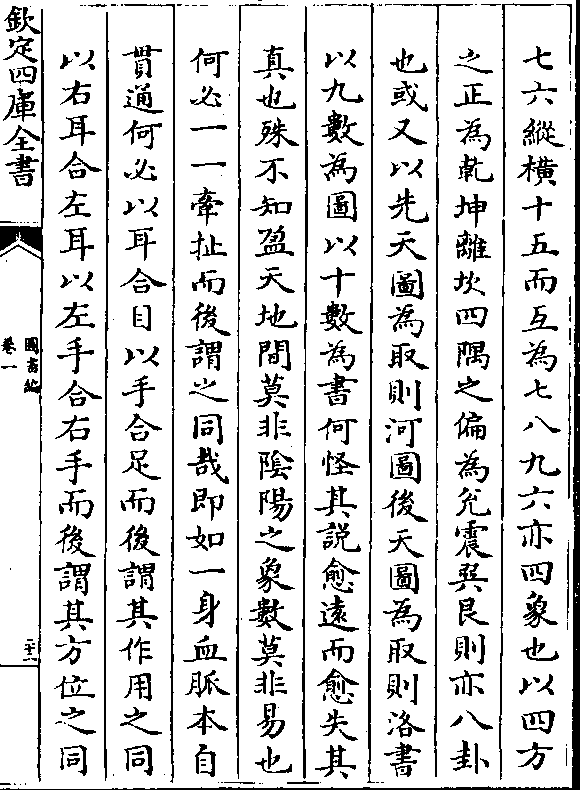 七六縱橫十五而互為七八九六亦四象也以四方
之正為乾坤離坎四隅之偏為兊震巽艮則亦八卦
也或又以先天圖為取則河圖後天圖為取則洛書
以九數為圖以十數為書何怪其説愈遠而愈失其
真也殊不知盈天地間莫非陰陽之象數莫非易也
何必一一牽扯而後謂之同哉即如一身血脈本自
貫通何必以耳合目以手合足而後謂其作用之同
以右耳合左耳以左手合右手而後謂其方位之同
欽定四庫全書
圖書編
卷一